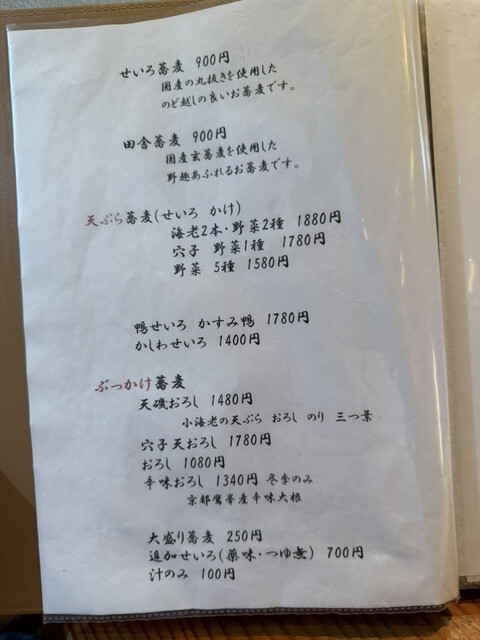 せいろ蕎麦 900円
国産の丸抜きを使用した
のど越しの良いお蕎麦です。
田舎蕎麦 900円
国産玄蕎麦を使用した
野趣あふれるお蕎麦です。
天ぷら蕎麦(せいろ かけ)
海老2本・野菜2種 1880円
穴子 野菜1種 1780円
野菜 5種 1580円
鴨せいろ かすみ鴨 1780円
かしわせいろ 1400円
ぶっかけ蕎麦
天磯おろし 1480円
小海老の天ぷら おろし のり 三つ葉
穴子天おろし 1780円
おろし 1080円
辛味おろし 1340円 冬季のみ
京都鷹峯産辛味大根
大盛り蕎麦 250円
追加せいろ(薬味・つゆ無) 700円
汁のみ 100円